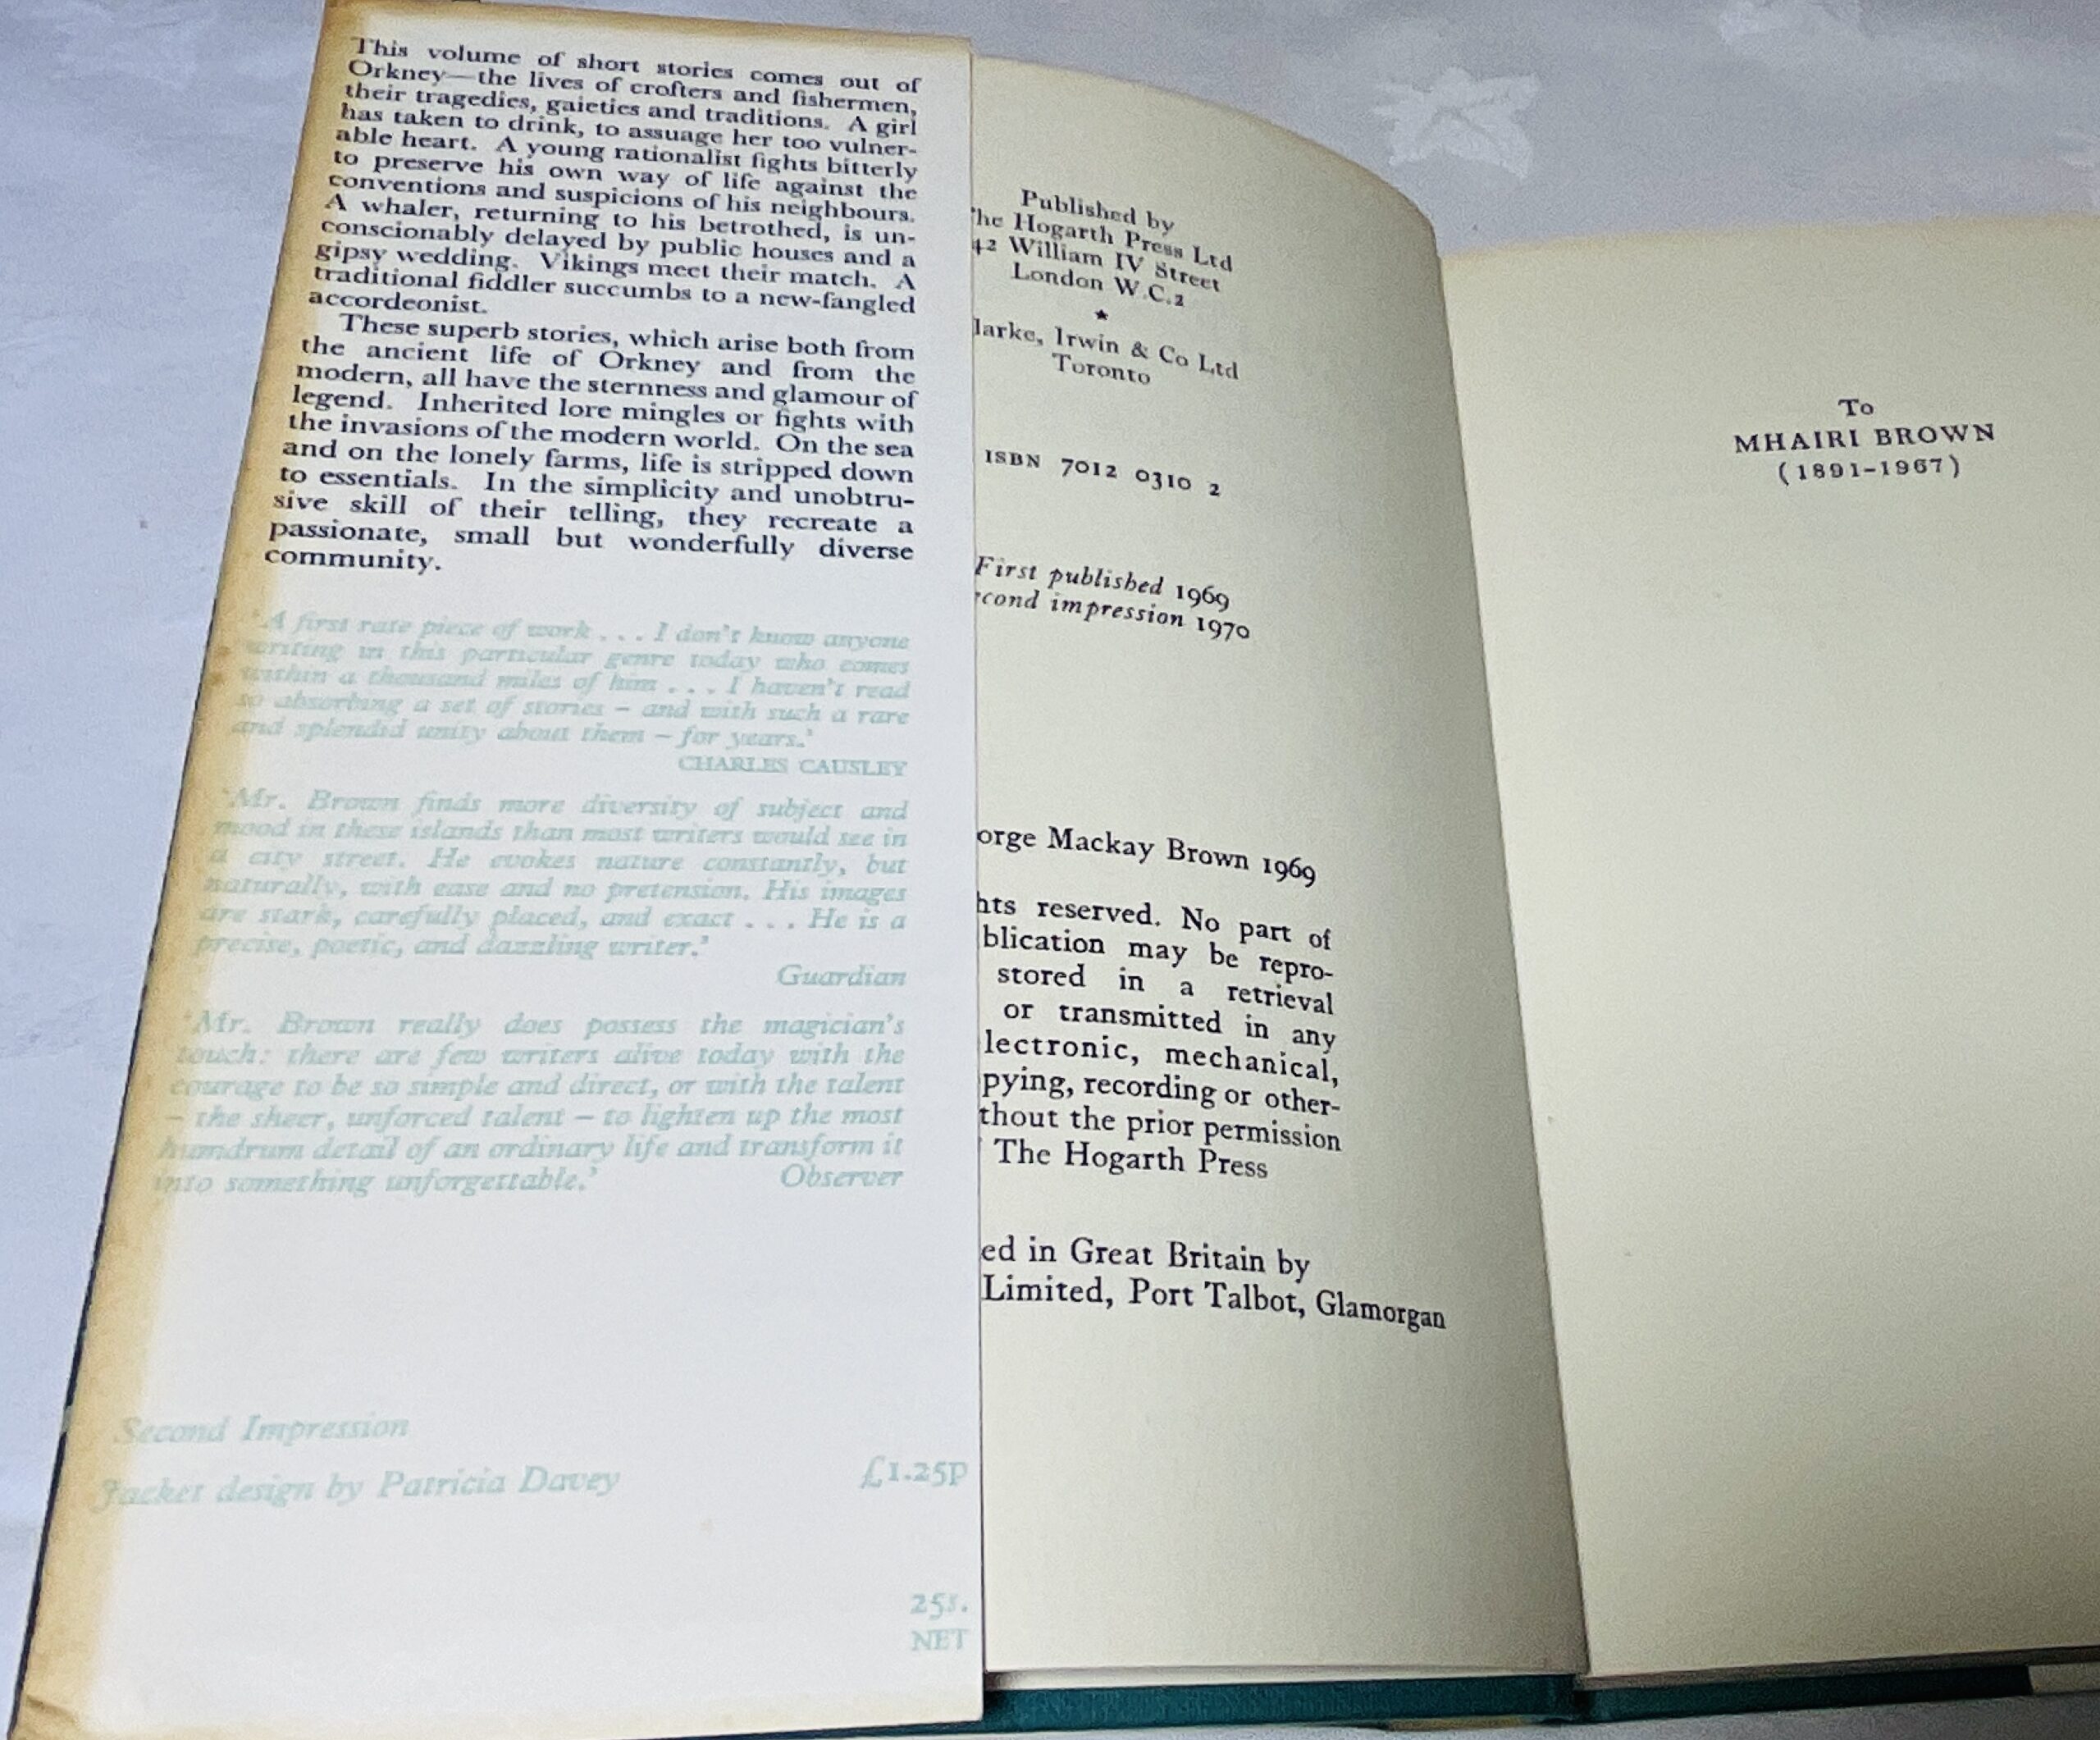 This volume of short stories comes out of
Orkney—the lives of crofters and fishermen,
their tragedies, gaieties and traditions. A girl
has taken to drink, to assuage her too vulner-
able heart. A young rationalist fights bitterly
to preserve his own way of life against the
conventions and suspicions of his neighbours.
A whaler, returning to his betrothed, is un-
conscionably delayed by public houses and a
gipsy wedding. Vikings meet their match. A
traditional fiddler succumbs to a new-fangled
accordeonist.
These superb stories, which arise both from
the ancient life of Orkney and from the
modern, all have the sternness and glamour of
legend. Inherited lore mingles or fights with
the invasions of the modern world. On the sea
and on the lonely farms, life is stripped down
to essentials. In the simplicity and unobtru-
sive skill of their telling, they recreate a
passionate, small but wonderfully diverse
community.
'A first rate piece of work . . . I don't know anyone
writing in this particular genre today who comes
within a thousand miles of him . . . I haven't read
so absorbing a set of stories – and with such a rare
and splendid unity about them – for years.'
CHARLES CAUSLEY
'Mr. Brown finds more diversity of subject and
mood in these islands than most writers would see in
a city street. He evokes nature constantly, but
naturally, with ease and no pretension. His images
are stark, carefully placed, and exact . . . He is a
precise, poetic, and dazzling writer.'
Guardian
'Mr. Brown really does possess the magician's
touch: there are few writers alive today with the
courage to be so simple and direct, or with the talent
– the sheer, unforced talent – to lighten up the most
humdrum detail of an ordinary life and transform it
into something unforgettable.' Observer
Second Impression
Jacket design by Patricia Davey £1.25p
25s.
NET
Published by
he Hogarth Press Ltd
42 William IV Street
London W.C.2
★
larke, Irwin & Co Ltd
Toronto
ISBN 7012 0310 2
First published 1969
cond impression 1970
orge Mackay Brown 1969
hts reserved. No part of
blication may be repro-
stored in a retrieval
or transmitted in any
lectronic, mechanical,
pying, recording or other-
thout the prior permission
The Hogarth Press
ed in Great Britain by
Limited, Port Talbot, Glamorgan
To
MHAIRI BROWN
(1891–1967)